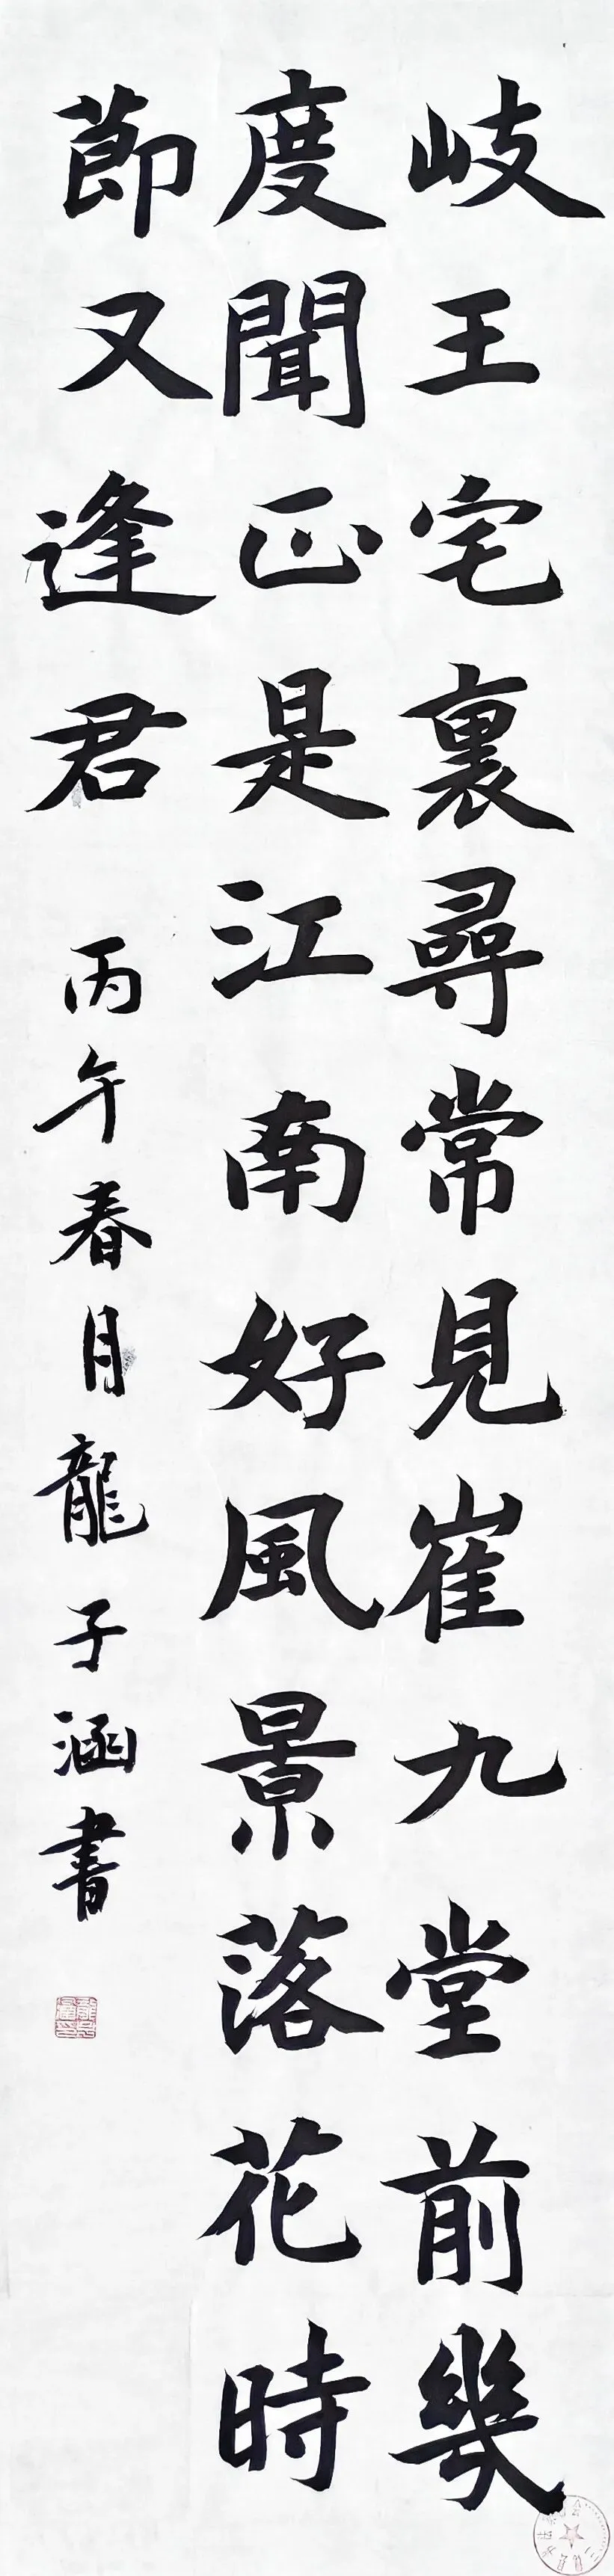 岐王宅裏尋常見崔九堂前幾
度聞正是江南好風景落花時
節又逢君
丙午春月龍子涵書